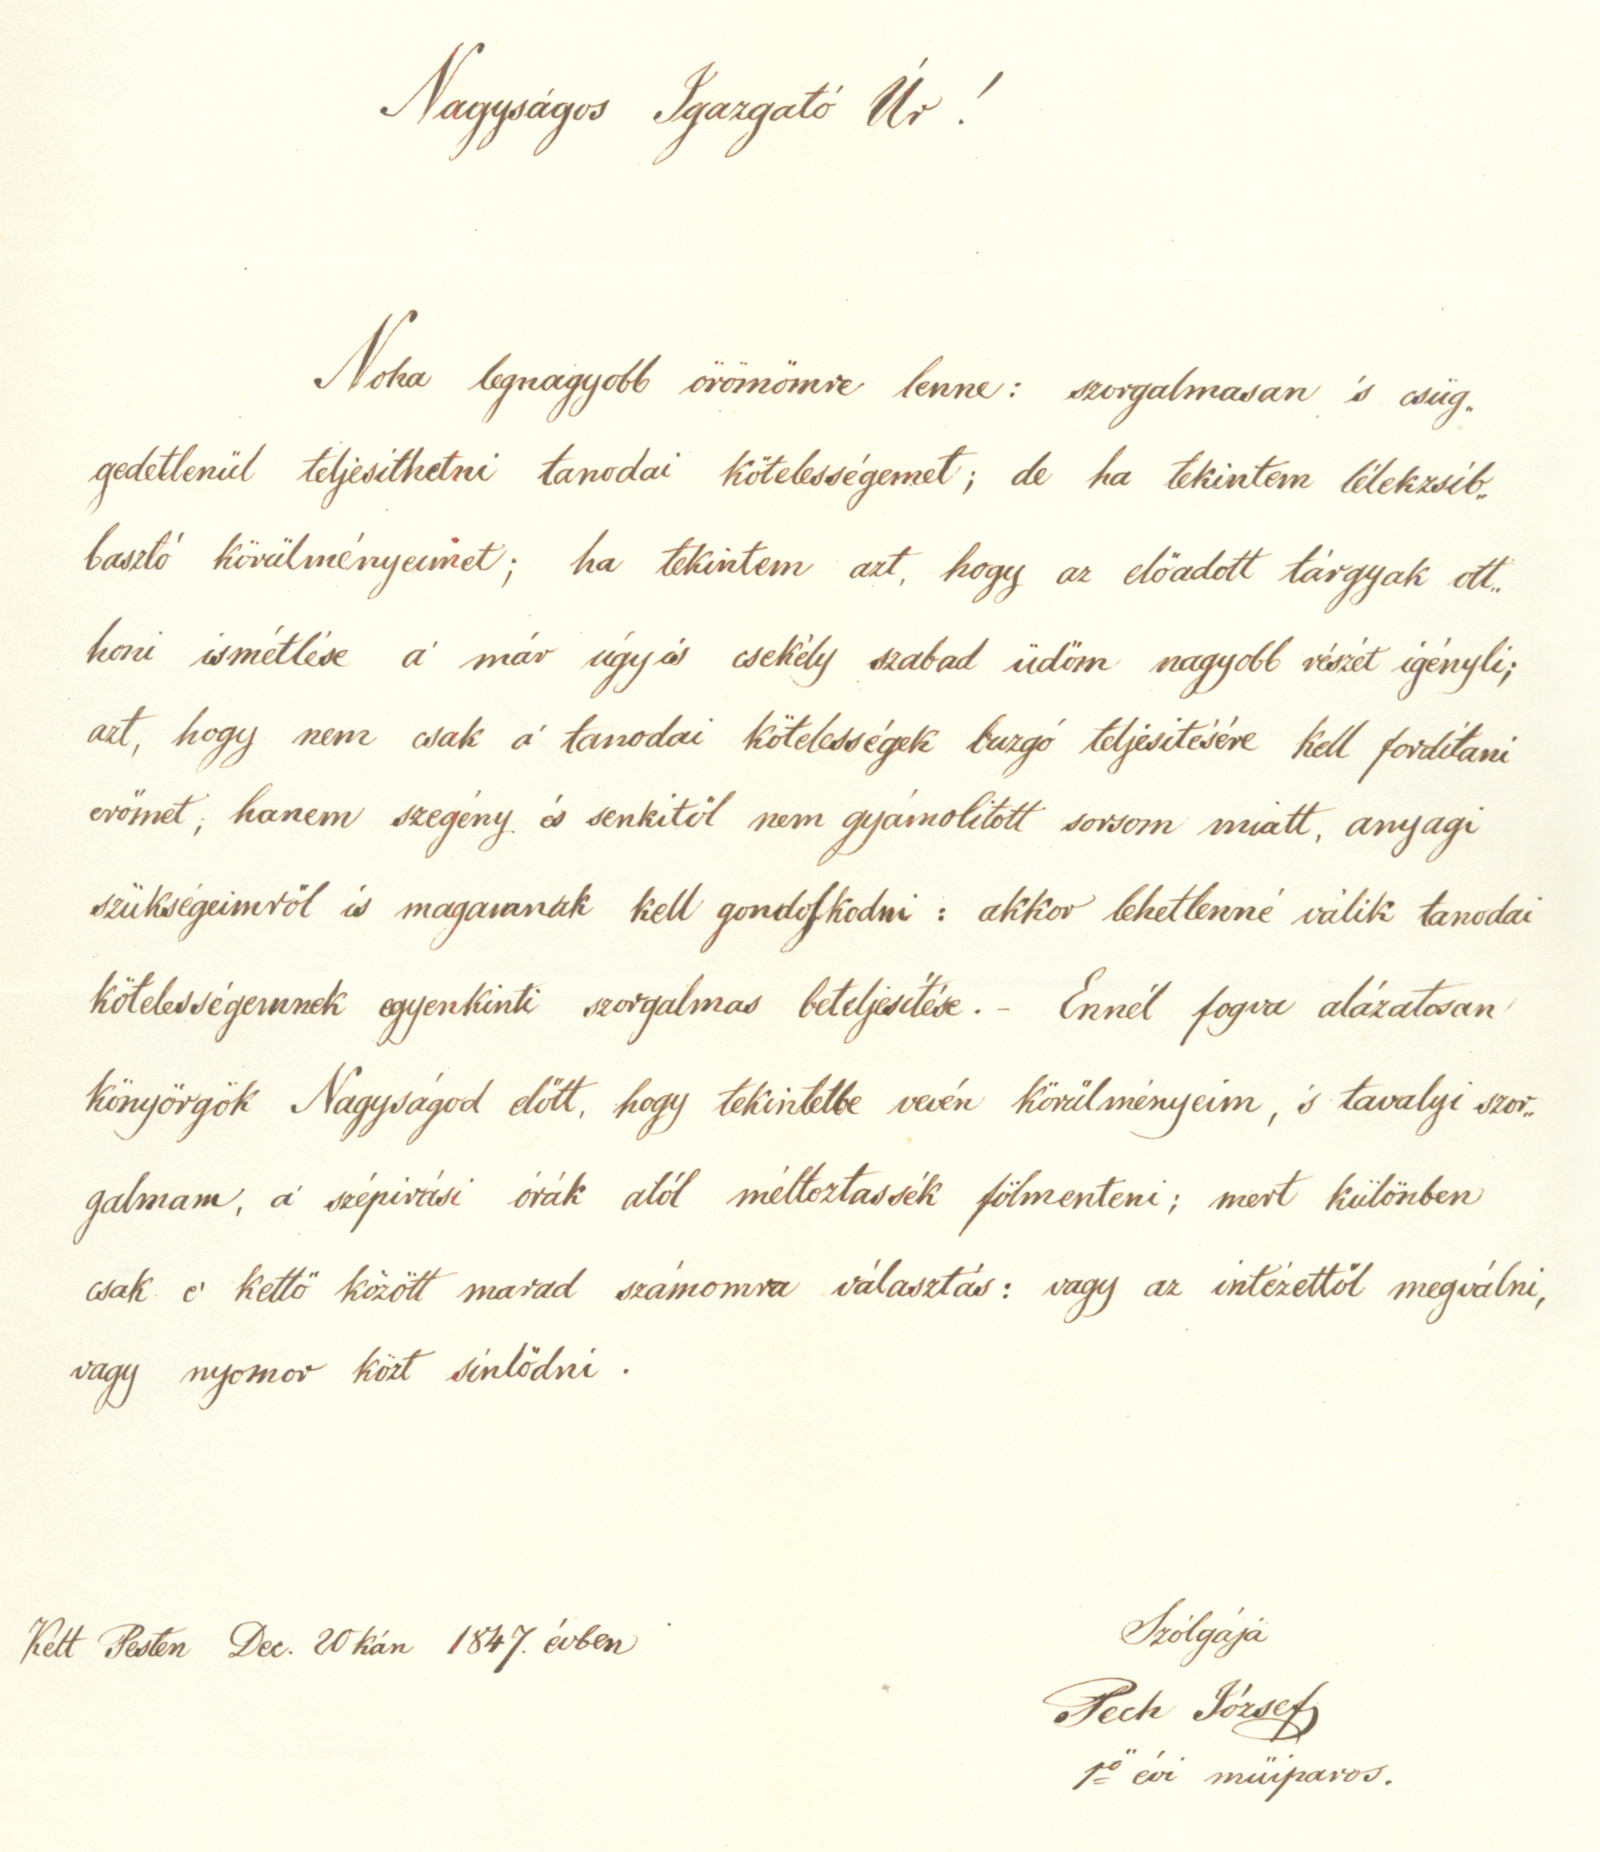 Nagyságos Igazgató Úr!
Noha legnagyobb örömömre lenne: szorgalmasan 's csüg„
gedetlenül teljesithetni tanodai kötelességemet; de ha tekintem lélekzsib„
basztó körülményeimet; ha tekintem azt, hogy az előadott tárgyak ott„
honi ismétlése a' már úgyis csekély szabad üdőm nagyobb részét igényli;
azt, hogy nem csak a' tanodai kötelességek buzgó teljesitésére kell forditani
erőmet, hanem szegény és senkitől nem gyámolitott sorsom miatt, anyagi
szükségeimről is magamnak kell gondolkodni: akkor lehetlenné válik tanodai
kötelességemnek egyenkinti szorgalmas beteljesitése. – Ennél fogva alázatosan
könyörgök Nagyságod előtt, hogy tekintetbe vevén körülményeim, 's tavalyi szor„
galmam, a' szépirási órák alól méltoztassék fölmenteni; mert különben
csak e' kettő között marad számomra választás: vagy az intézettől megválni,
vagy nyomor közt sinlődni.
Kelt Pesten Dec. 20kán 1847. évben
Szólgájá
Pech József
1ső évi müiparos.